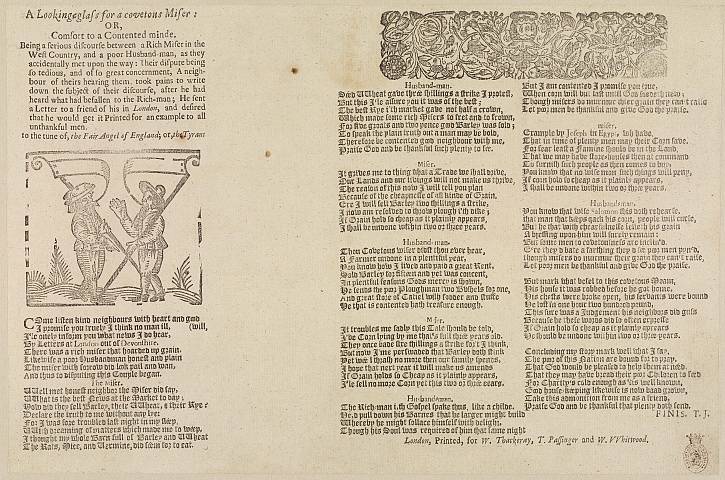 A Lookingglass for a covetous Miser:
OR,
Comfort to a Contented minde.
Being a serious discourse between a Rich Miser in the
West Country, and a poor Husband-man, as they
accidentally met upon the way: Their dispute being
so tedious, and of so great concernment, A neigh-
bour of theirs hearing them, took pains to write
down the subject of their discourse, after he had
heard what had befallen to the Rich-man; He sent
a Letter to a friend of his in London, and desired
that he would get it Printed for an example to all
unthankful men.
to the tune of, the Fair Angel of England; or, the Tyrant
COme listen kind neighbours with heart and good
I promise you truely I think no man ill, (will,
I'le onely inform you what news I do hear,
By Letters at London out of Devonshire.
There was a rich miser that hoarded up grain.
Likewise a poor Husbandman honest and plain
The miser with sorrow did look pail and wan,
And thus to disputing this Couple began.
The Miser.
Well met honest neighbor the Miser did say,
What is the best News at the Market to day;
How did they sell Barley, their Wheat, & their Rye
Declare the truth to me without any lye:
For I was sore troubled last night in my sleep,
With dreaming of matters which made me to weep,
I thought my whole Barn full of Barley and Wheat
The Rats, Mice, and Vermine, did seem for to eat.
Husband-man.
Good Wheat gave three shillings a strike I protest,
But this I'le assure you it was of the best;
The best Rye this market gave not half a crown,
Which made some rich Misers to fret and to frown,
For five groats and two pence good Barley was sold;
To speak the plain truth out a man may be bold,
Therefore be contented good neighbour with me,
Praise God and be thankful such plenty to see.
Miser.
It grieves me to think what a Trade we shall drive,
Our Lands and our livings will not make us thrive,
The reason of this now I will tell you plan
Because of the cheapnesse of all kinde of Grain,
Ere I will sell Barley two shillings a strike,
I now am resolved to thole plough i'th dike;
If Grain hold so cheap as it plainly appears,
I shall be undone within two or three years.
Husband-man.
Thou Covetous Miser didst thou ever hear,
A Farmer undone in a plentiful year,
You know how I lived and paid a great Rent,
Sold Barley for sixteen and yet was content,
In plentiful seasons Gods mercy is shown,
He sends the poor Ploughman two Wheels for one,
And great store of Cattel with fodder and stuffe
He that is contented hath treasure enough.
Miser.
It troubles me sadly this Tale should be told,
I've Corn lying by me that's full three years old.
They once bad five shillings a strike for't I think,
But now I'me perswaded that Barley doth stink
Yet we I thank no more then our family spends,
I hope that next year it will make us amends
If Grain holds so Cheap as it plainly appears,
I'le sell no more Corn yet this two or three years.
Husband-man.
The Rich-man i'th Gospel spake thus, like a childe.
He'd pull down his Barnes that he larger might build
Whereby he might sollace himself with delight,
Though his Soul was required of him that same night
But I am contented I promise you true,
When corn will but last until God sends new;
Though misers do murmure their grain they can't raise
Let poor men be thankful and give God the praise.
Miser.
Example by Joseph in Egypt, we have.
That in time of plenty men may their Corn save.
For fear least a Famine should be in the Land,
That we may have store-houses then at command
To furnish such people as then comes to buy:
You know that no wise men such things will deny,
If corn hold so cheap as it plainly appears,
I shall be undone within two or three years.
Husband-man.
You know that wise Solomon this doth rehearse,
that man that keeps back his coin, people will curse,
But he that with chearfulnesse selleth his grain
A blessing upon him will surely remain:
But some men to covetousness are inclin'd.
Ere they'd bate a farthing they'd see poor men pyn'd,
though misers do murmure their grain they can't raise,
Let poor men be thankful and give God the praise.
But mark what befel to this covetous Swain,
His house it was robbed before he got home.
His chests were broke open, his servants were bound
He lost in one hour two hundred pound,
This sure was a Judgement his neighbors did guess
Because he these words did so often expresse
If Grain hold so cheap as it plainly appears
He should be undone within two or three years.
Concluding my story mark well what I say,
The poor of this Nation are bound for to pray,
That God would be pleased to help them at need,
That they may have bread their poor Children to feed
For Charity's cold enough as 'tis well known,
Good house-keeping likewise is now dead grown,
Take this admonition from me as a friend,
Praise God and be thankful that plenty doth send.
FINIS. T. J.
London, Printed, for W. Thackeray, T. Passinger and W. Whitwood.